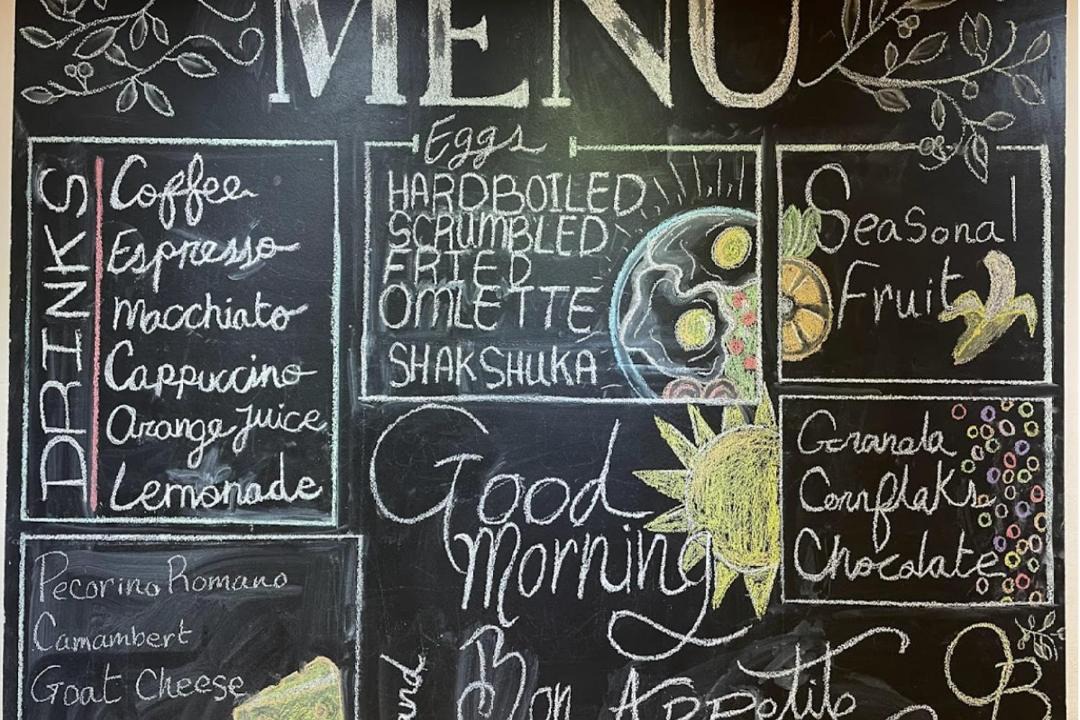 MENU
DRINKS
Coffee
Espresso
Macchiato
Cappuccino
Orange Juice
Lemonade
Eggs
HARDBOILED
SCRUMBLED
FRIED
OMLETTE
SHAKSHUKA
Seasonal
Fruit
Granola
Cornflaks
Chocolate
Good
Morning
Pecorino Romano
Camambert
Goat Cheese
Bon Appetito